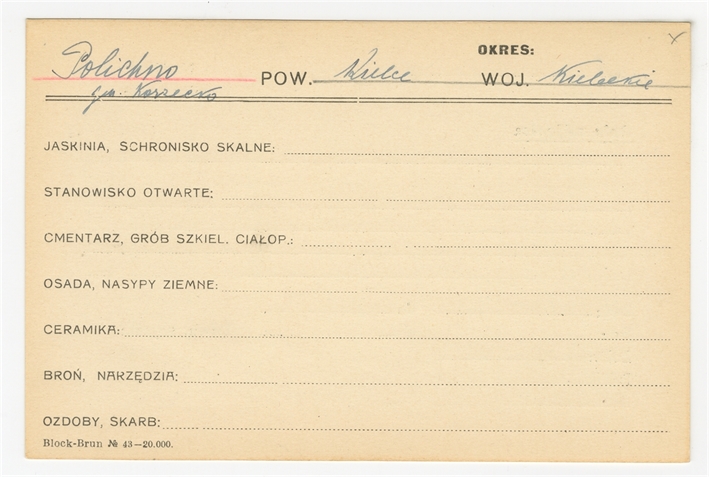 OKRES:
Polichno POW. Kielce WOJ. Kieleckie
gm. Korzecko
JASKINIA, SCHRONISKO SKALNE:
STANOWISKO OTWARTE:
CMENTARZ, GRÓB SZKIEL. CIAŁOP.:
OSADA, NASYPY ZIEMNE:
CERAMIKA:
BROŃ, NARZĘDZIA:
OZDOBY, SKARB:
Block-Brun № 43—20.000.